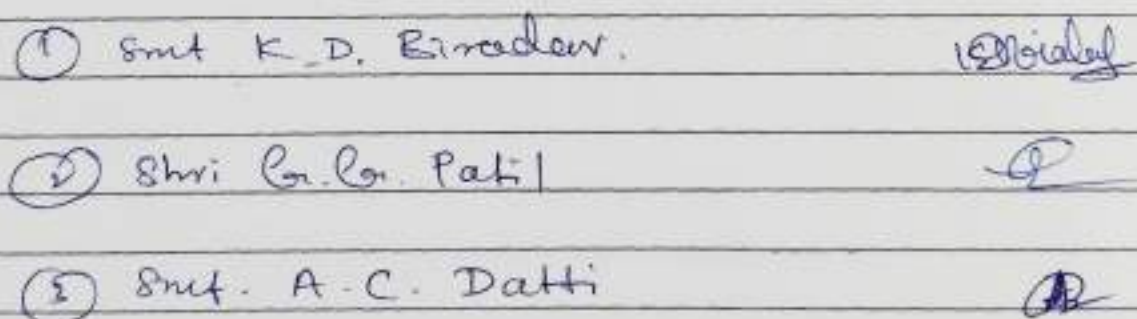 ① Smt K. D. Biradar.
② Shri G. G. Patil
③ Smt. A. C. Datti